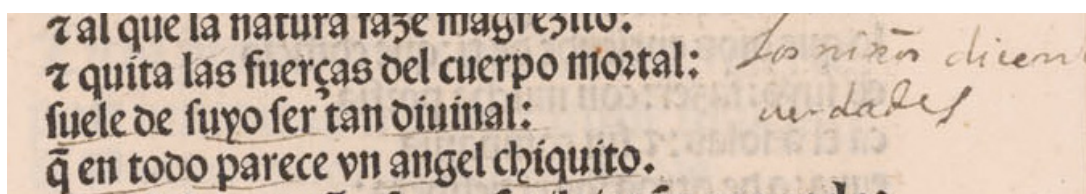 ⁊ al que la natura faze magrezito:
⁊ quita las fuerças del cuerpo mortal:
suele de suyo ser tan diuinal:
q̃ en todo parece vn angel chiquito.
Los niños dicen
verdades